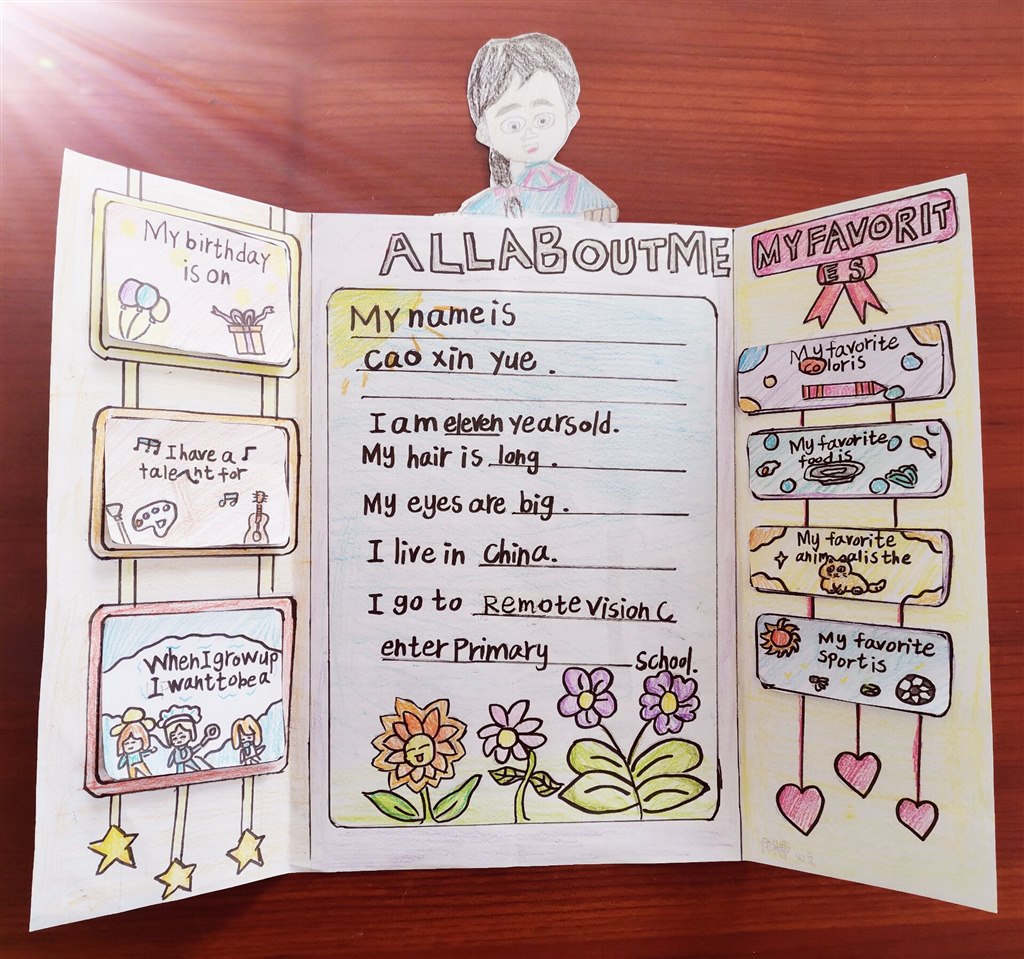 My birthday
is on
I have a
talent for
When I grow up
I want to be a
ALL ABOUT ME
My name is
cao xin yue.
I am eleven years old.
My hair is long.
My eyes are big.
I live in China.
I go to Remote Vision C
enter Primary school.
MY FAVORIT
ES
My favorite
color is
My favorite
food is
My favorite
animal is the
My favorite
sport is